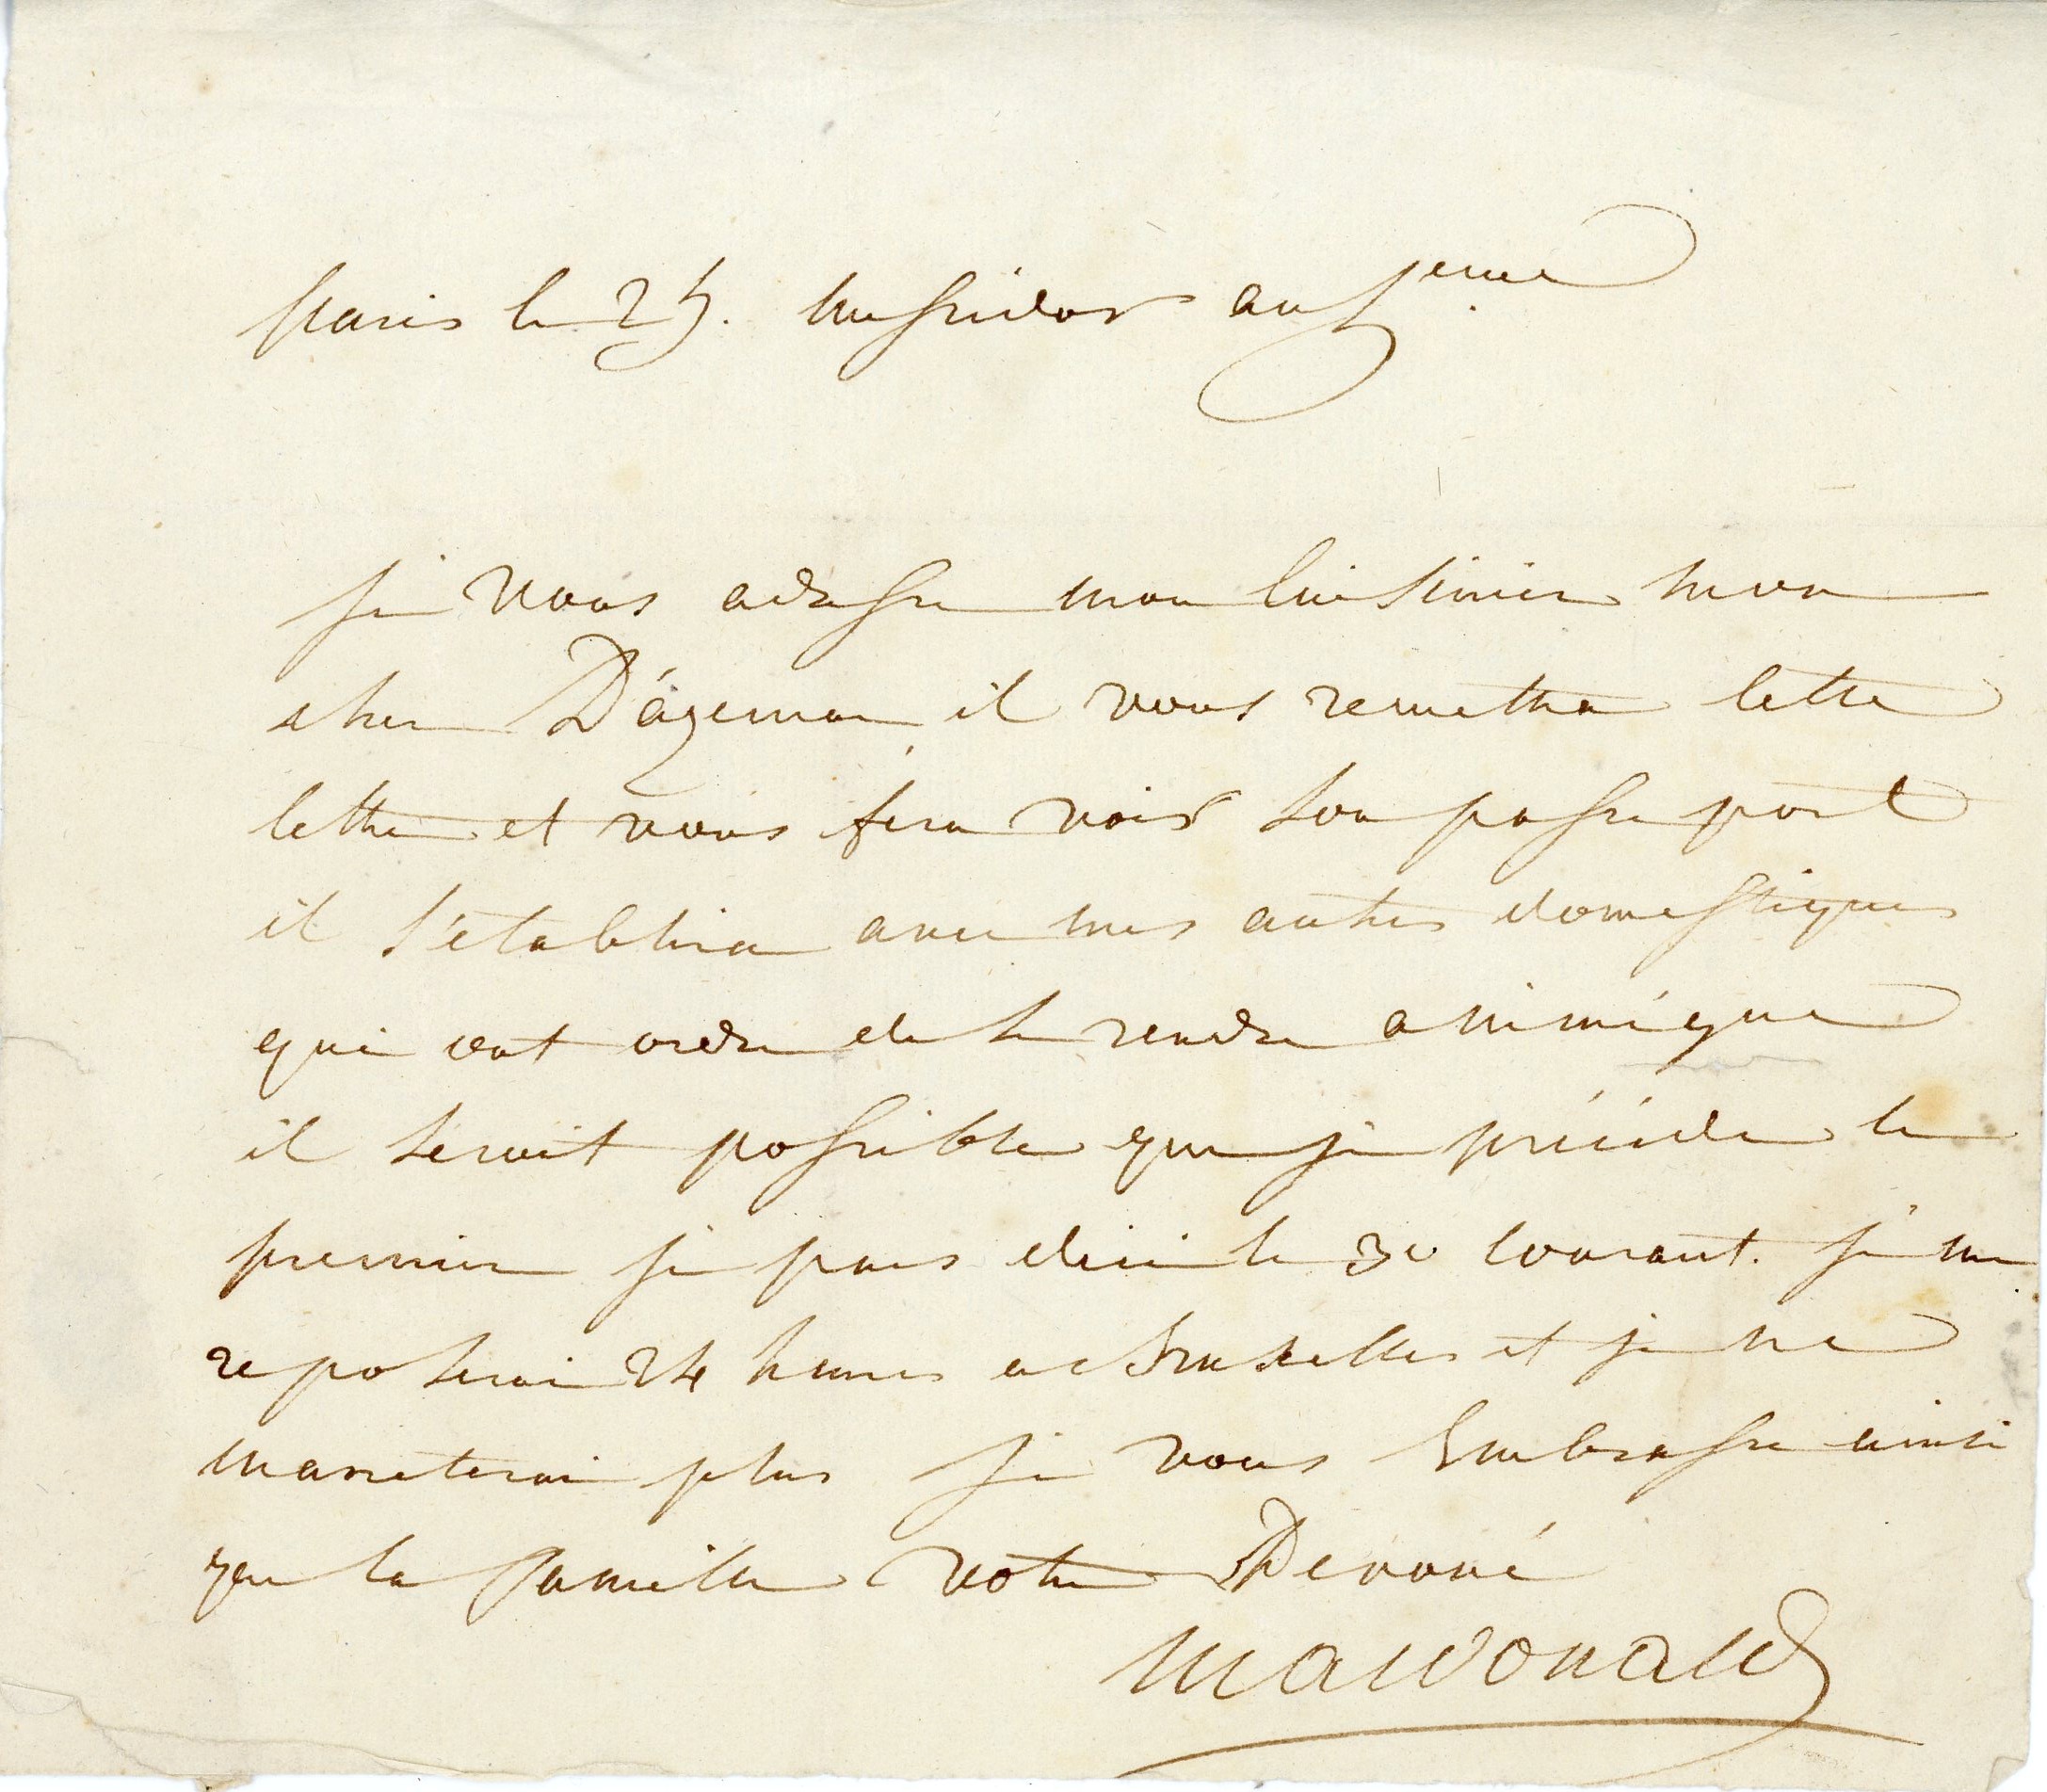 Paris le 25. messidor an 5eme
je vous adresse mon Cuisinier mon
cher D'ágeman il vous remettra cette
lettre et vous fera voir son passe port
il s'etablira avec mes autres domestiques
qui ont ordre de se rendre a nimégue
il seroit possible que je précéde le
premier je pars dici le 30 Courant. je me
reposerai 24 heures a Bruxelles et je ne
marreterai plus je vous Embrasse ainsi
que la famille votre Devoué
Macdonald